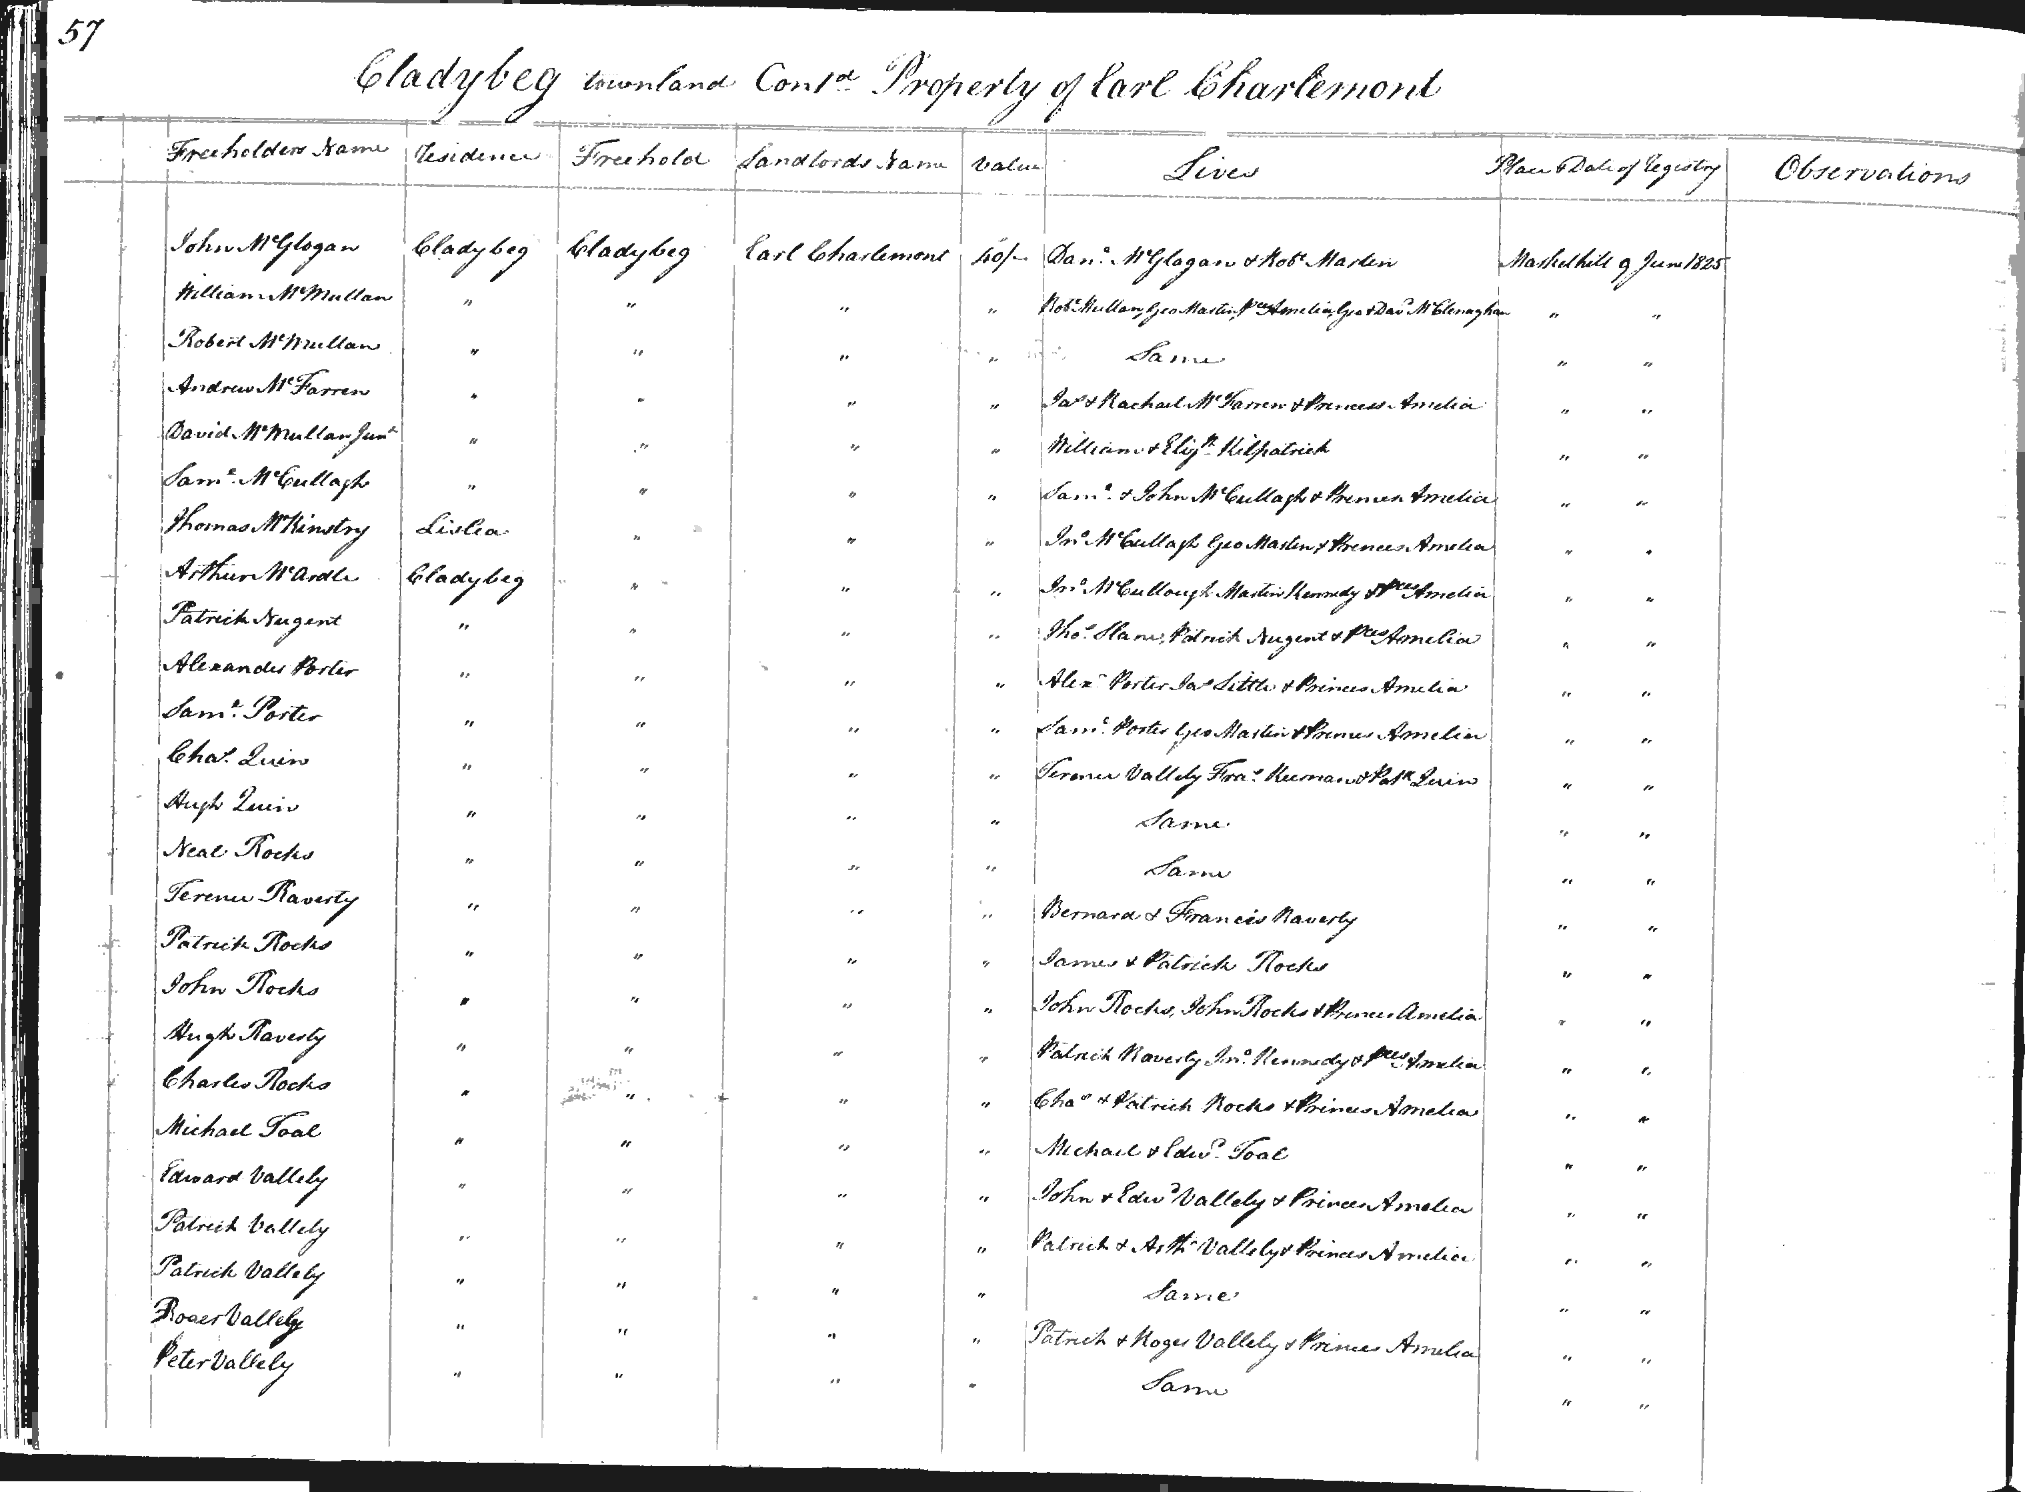 57
Cladybeg townland Cont^d Property of Earl Charlemont
Freeholders Name Residence Freehold Landlords Name Value Lives Place & Date of Registry Observations
John McGlogan Cladybeg Cladybeg Earl Charlemont 40/- Dan^l McGlogan & Rob^t Martin Markethill 9 June 1825
William McMullan " " " " Rob^t Mullan, Geo Martin, P^ces Amelia, Geo & Dav^d McClenaghan " "
Robert McMullan " " " " Same " "
Andrew McFarren " " " " Ja^s & Rachael McFarren & Princess Amelia " "
David McMullan Jun^r " " " " William & Eliz^th Kilpatrick " "
Sam^l McCullagh " " " " Sam^l & John McCullagh & Princess Amelia " "
Thomas McKinstry Lislea " " " Jn^o McCullagh Geo Martin & Princes Amelia " "
Arthur McArdle Cladybeg " " " Jn^o McCullough Martin Kennedy & P^ces Amelia " "
Patrick Nugent " " " " Tho^s Slane, Patrick Nugent & P^ces Amelia " "
Alexander Porter " " " " Alex^r Porter Ja^s Little & Princes Amelia " "
Sam^l Porter " " " " Sam^l Porter Geo Martin & Princes Amelia " "
Cha^s Quin " " " " Terence Vallely Fra^s Keenan & Pat^k Quin " "
Hugh Quin " " " " Same " "
Neal Rocks " " " " Same " "
Terence Raverty " " " " Bernard & Francis Raverty " "
Patrick Rocks " " " " James & Patrick Rocks " "
John Rocks " " " " John Rocks, John Rocks & Princes Amelia " "
Hugh Raverty " " " " Patrick Raverty Jn^o Kennedy & P^ces Amelia " "
Charles Rocks " " " " Cha^s & Patrick Rocks & Princes Amelia " "
Michael Toal " " " " Michael & Edw^d Toal " "
Edward Vallely " " " " John & Edw^d Vallely & Princes Amelia " "
Patrick Vallely " " " " Patrick & Arth^r Vallely & Princes Amelia " "
Patrick Vallely " " " " Same " "
Roger Vallely " " " " Patrick & Roger Vallely & Princes Amelia " "
Peter Vallely " " " " Same " "